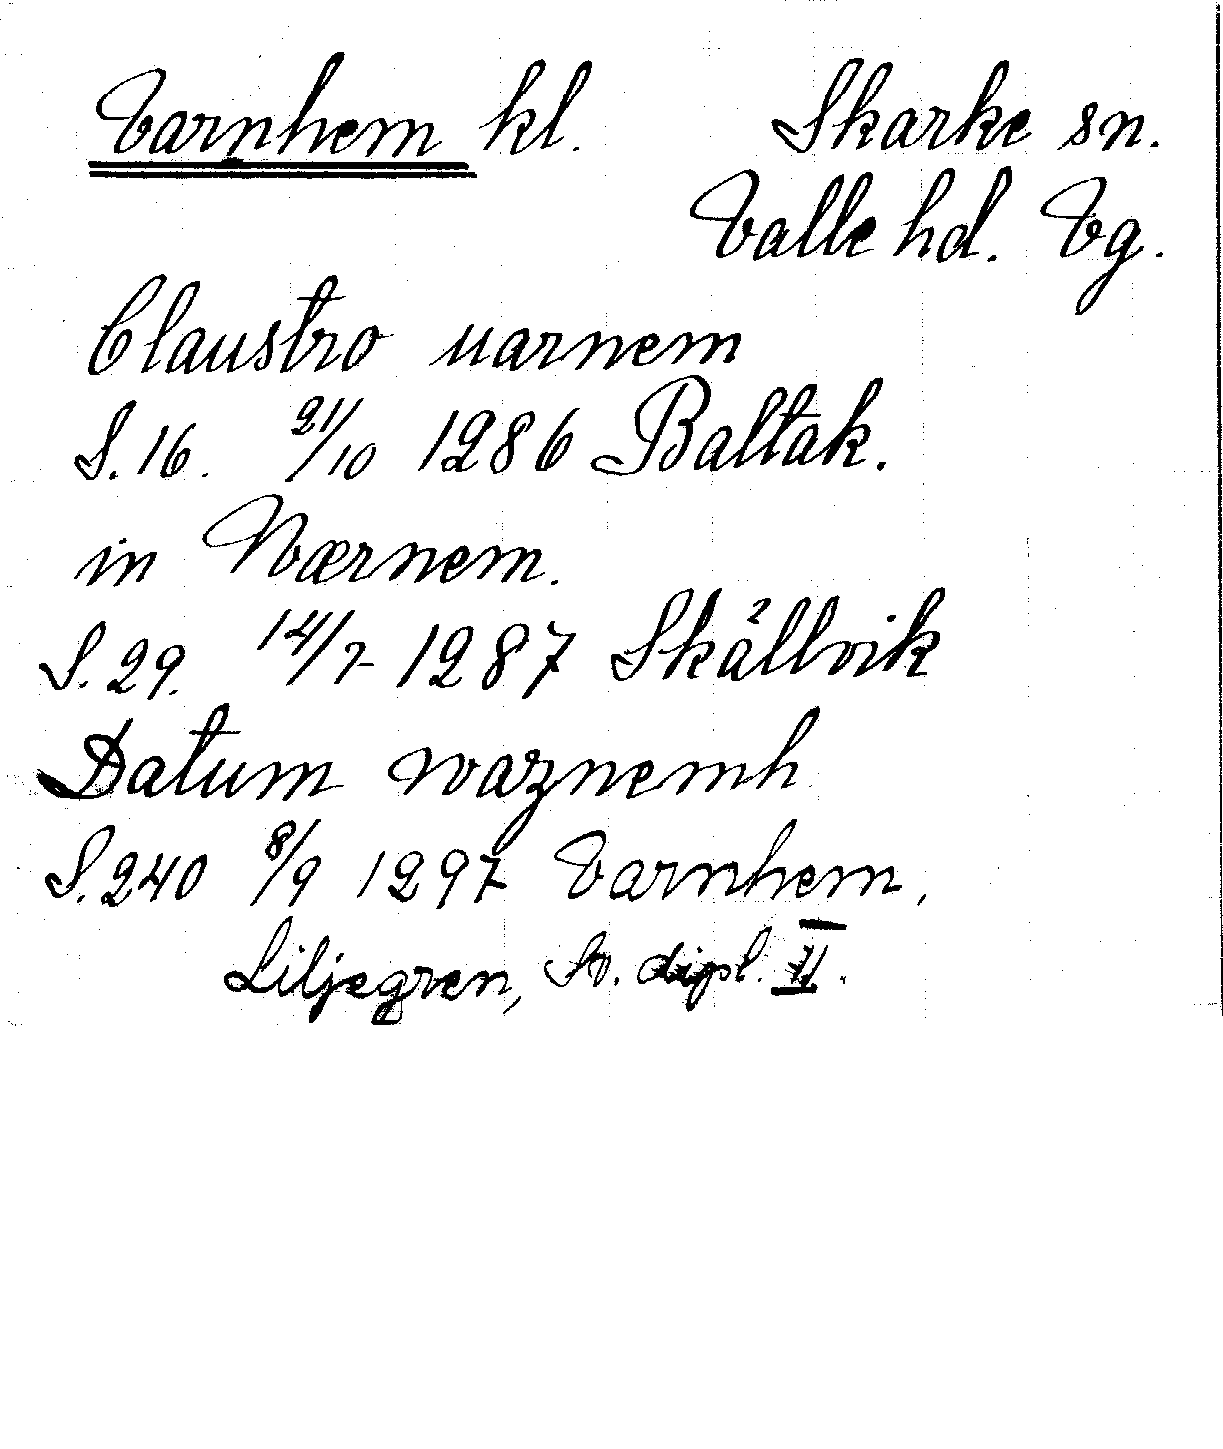 Varnhem kl. Skarke sn.
Valle hd. Vg.
Claustro uarnem
S. 16. 21/10 1286 Baltak.
in Wærnem.
S. 29. 14/7 1287 Skällvik
Datum waznemh
S. 240 8/9 1297 Varnhem,
Liljegren, Sv. dipl. II.